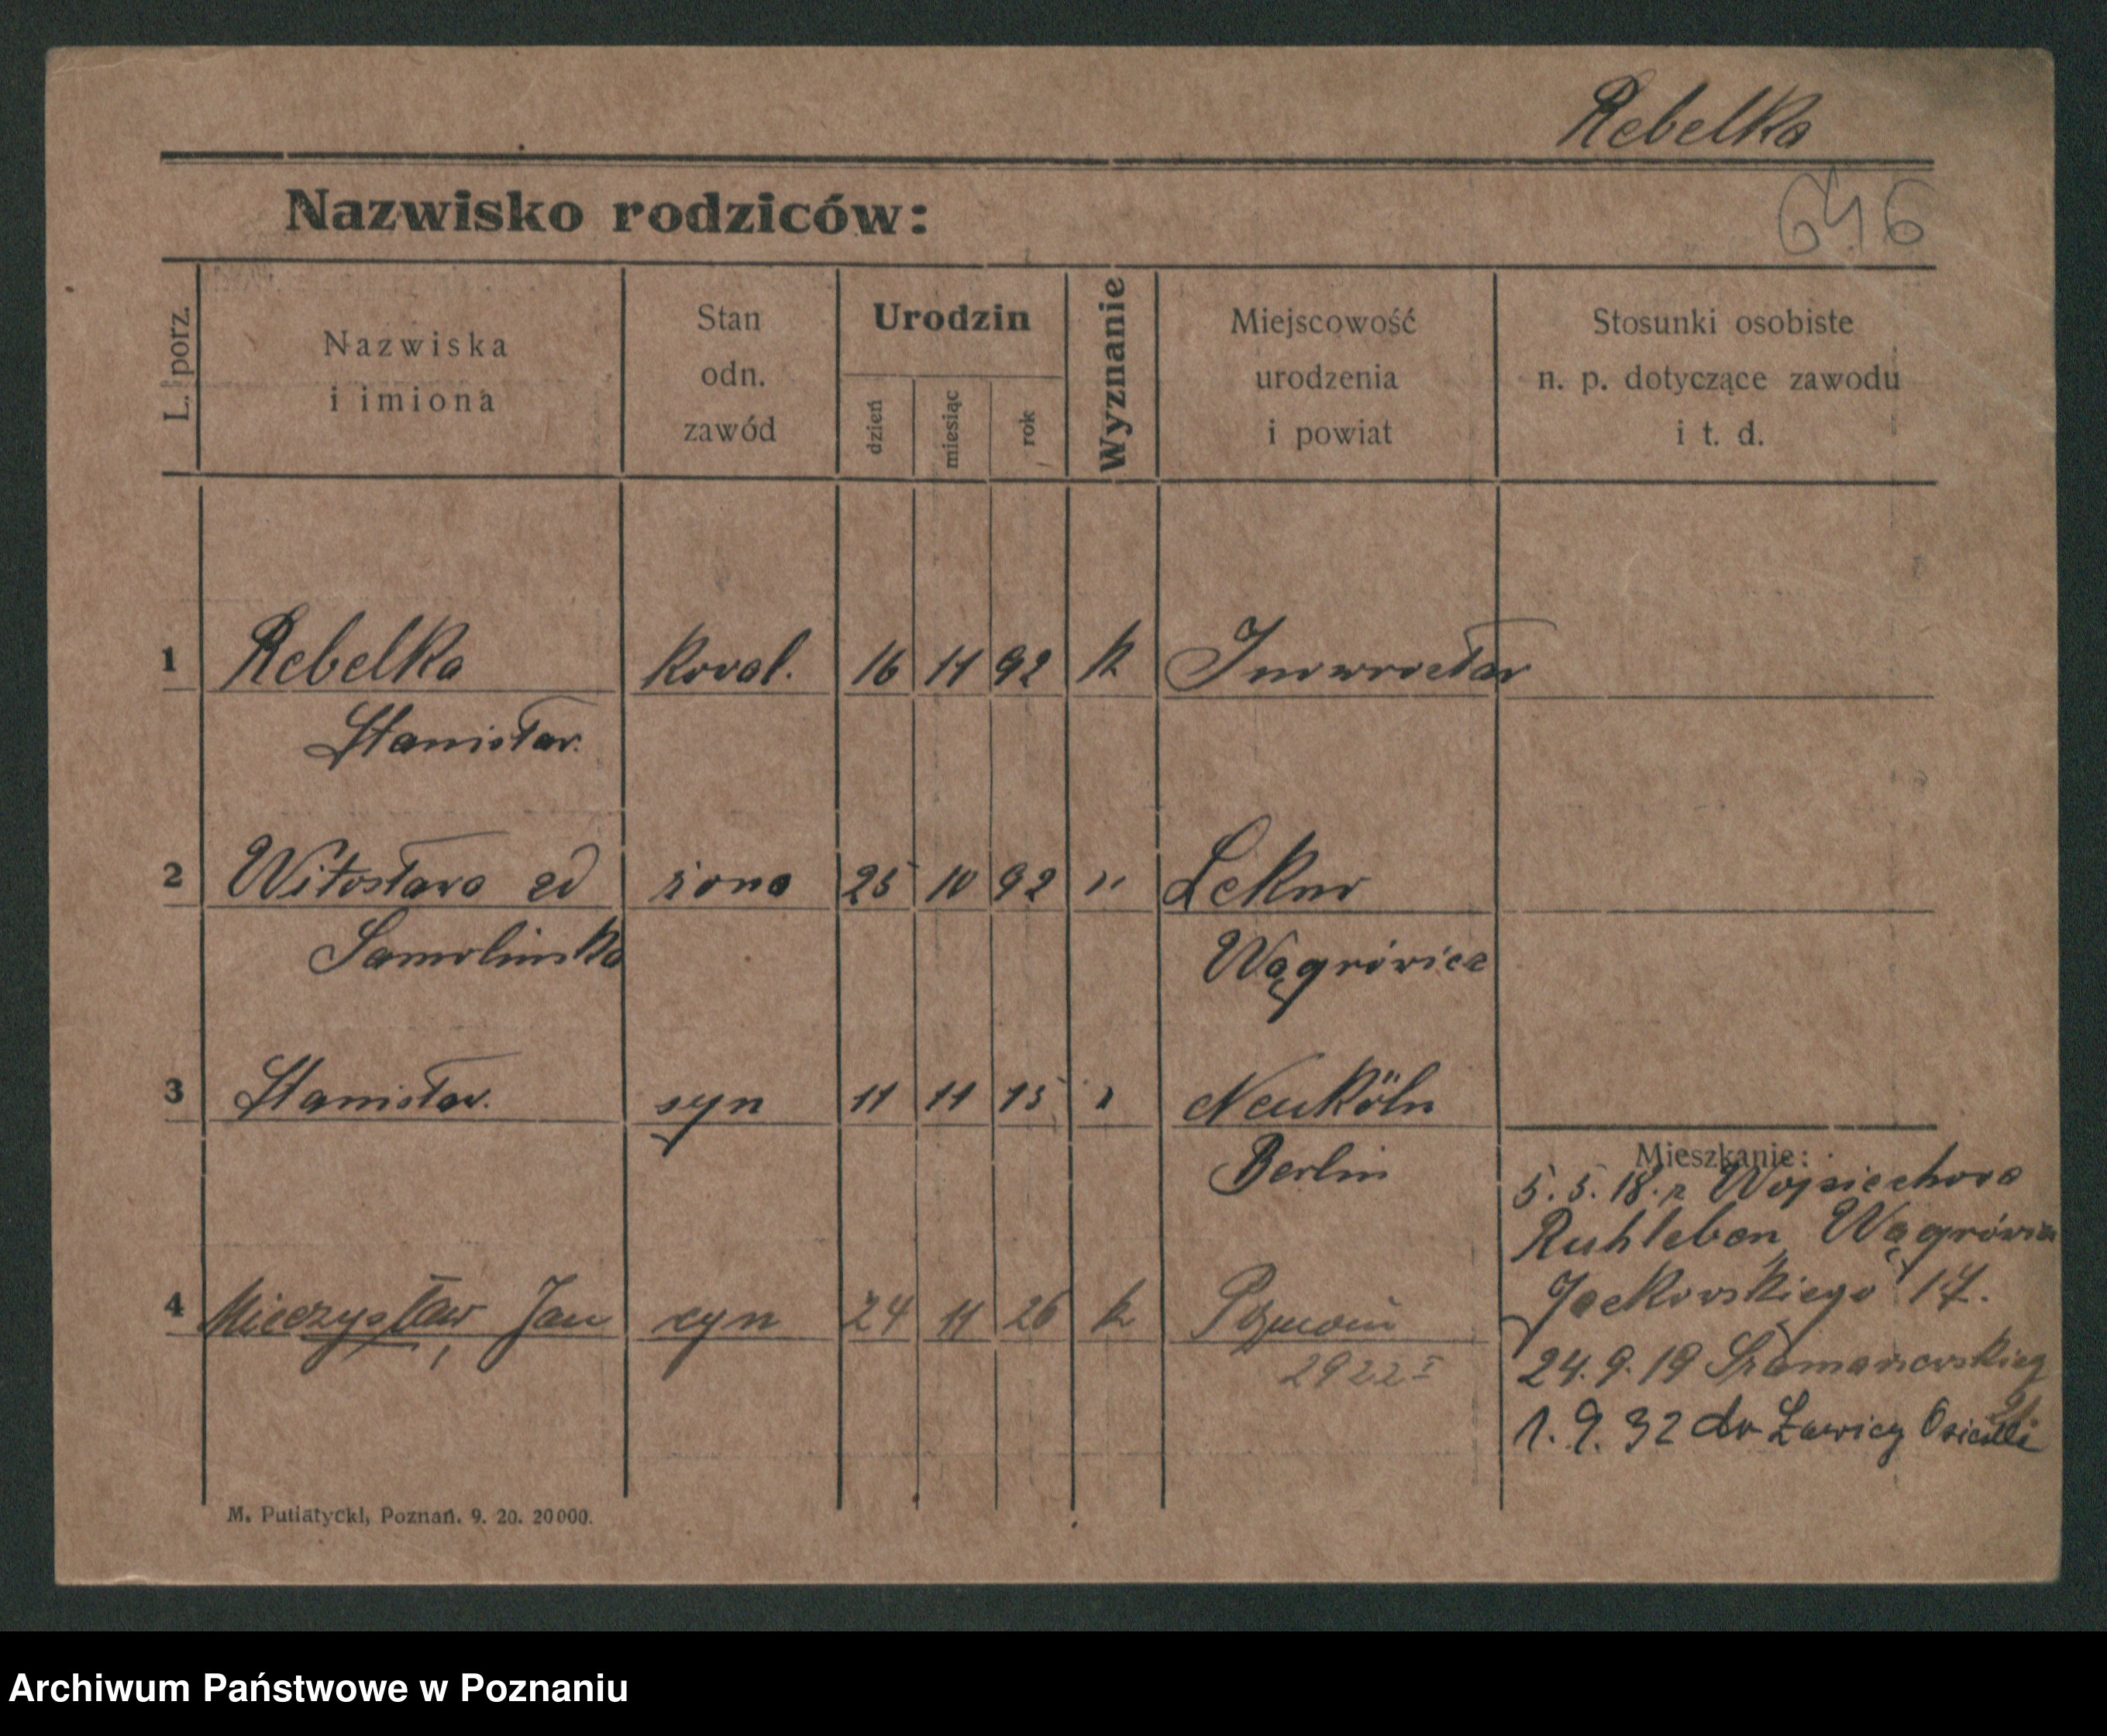 Rebelka
646
Nazwisko rodziców:
L. porz.
Nazwiska
i imiona
Stan
odn.
zawód
Urodzin
dzień
miesiąc
rok
Wyznanie
Miejscowość
urodzenia
i powiat
Stosunki osobiste
n. p. dotyczące zawodu
i t. d.
1 Rebelka koval. 16 11 92 k Inowrocław
Stanisław.
2 Witosława zd żona 25 10 92 " Lekno
Samolinska Wągrówiec
3 Stanisław. syn 11 11 15 " Neuköln
Berlin
4 Mieczysław, Jan syn 24 11 26 k Poznań
2922 I
Mieszkanie:
5. 5. 18. z Wojciechova
Ruhleben, Wągrówiec
Jackowskiego 17.
24. 9. 19
1. 9. 32 do Ławicy
M. Putiatycki, Poznań. 9. 20. 20000.
Archiwum Państwowe w Poznaniu